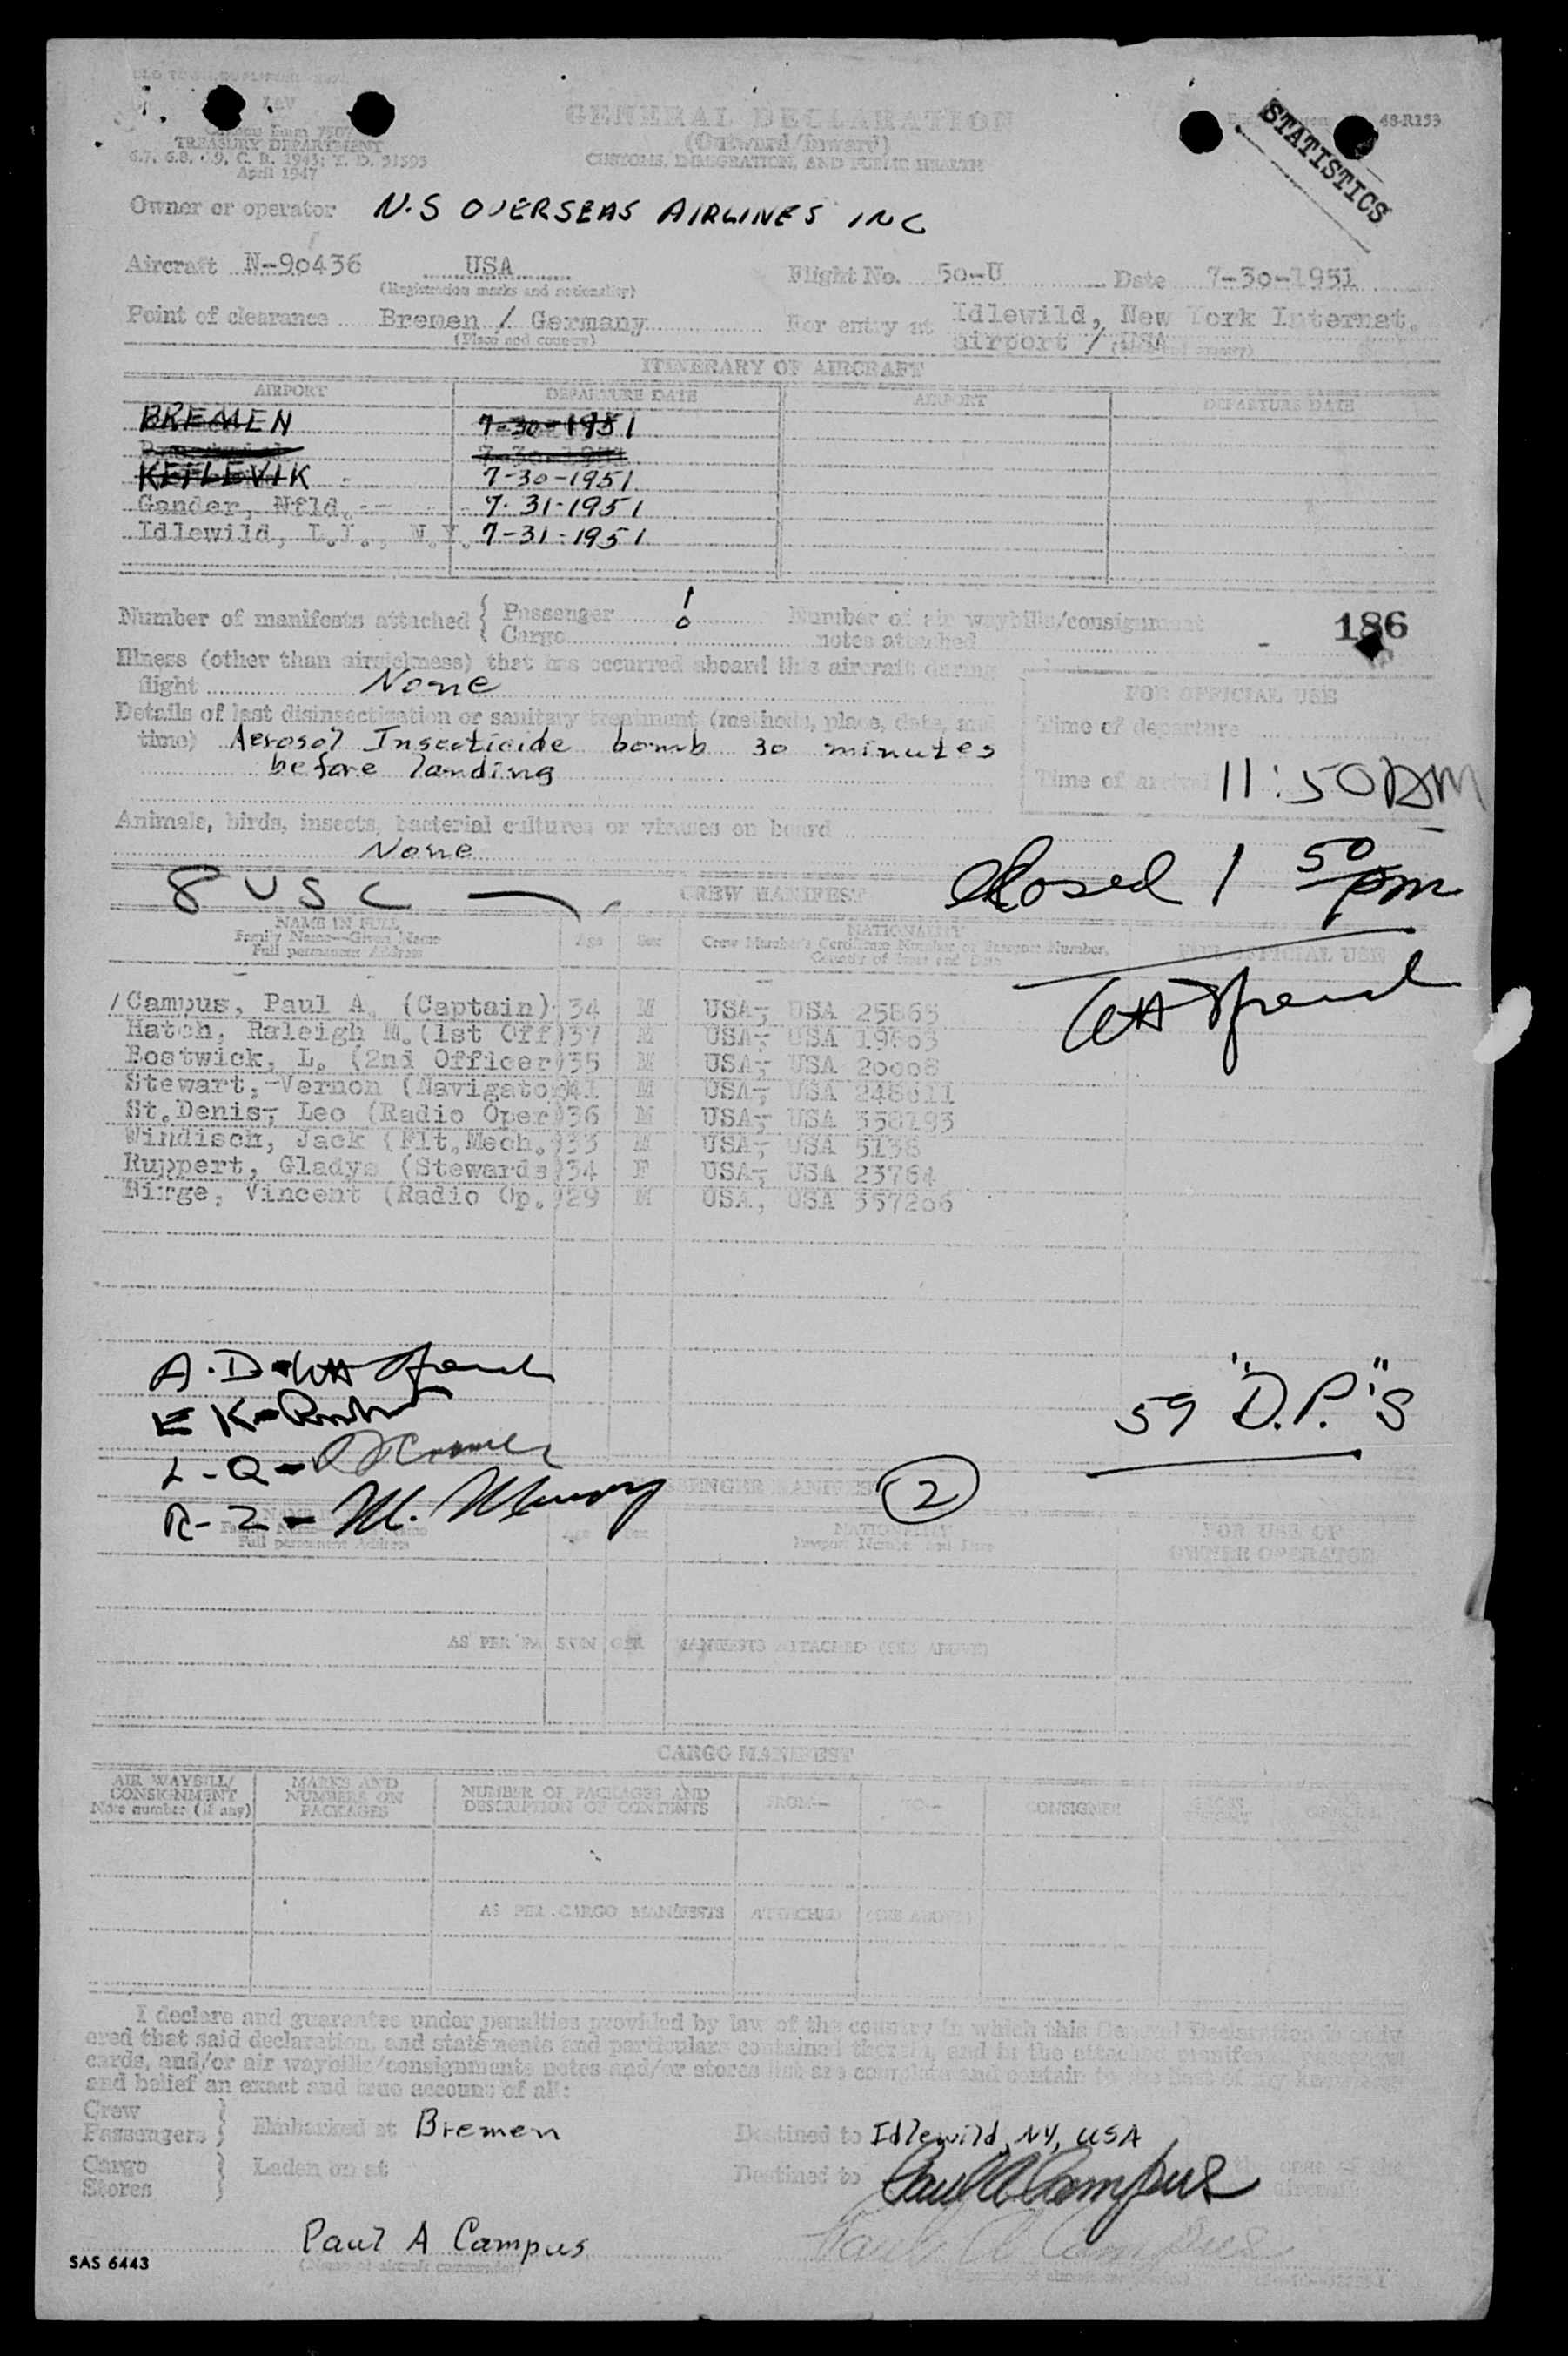 Customs Form 7507
TREASURY DEPARTMENT
6.7, 6.8, 6.9, C. R. 1943; T. D. 51595
April 1947
GENERAL DECLARATION
(Outward/Inward)
CUSTOMS, IMMIGRATION, AND PUBLIC HEALTH
48-R153
STATISTICS
Owner or operator N.S OVERSEAS AIRLINES INC
Aircraft N-90436 USA Flight No. 50-U Date 7-30-1951
(Registration marks and nationality)
Point of clearance Bremen / Germany For entry at Idlewild, New York Internat.
(Place and country) airport / USA
ITINERARY OF AIRCRAFT
AIRPORT DEPARTURE DATE AIRPORT DEPARTURE DATE
BREMEN 7-30-1951
KEFLEVIK 7-30-1951
Gander, Nfld. 7-31-1951
Idlewild, L.I., N.Y. 7-31-1951
Number of manifests attached { Passenger 1 Number of air waybills/consignment
Cargo 0 notes attached -
186
Illness (other than airsickness) that has occurred aboard this aircraft during
flight None
FOR OFFICIAL USE
Details of last disinsectisation or sanitary treatment (methods, place, date, and
time) Aerosol Insecticide bomb 30 minutes
before landing
Time of departure
Time of arrival 11:50 AM
Animals, birds, insects, bacterial cultures or viruses on board
None
8 USC
CREW MANIFEST
Closed 1 50 pm
NAME IN FULL
Family Name—Given Name
Full permanent Address
Age Sex
NATIONALITY
Crew Member's Certificate Number or Passport Number,
Country of Issue and Date
FOR OFFICIAL USE
Campus, Paul A. (Captain) 34 M USA, USA 25865
Hatch, Raleigh M. (1st Off) 37 M USA, USA 19603
Bostwick, L. (2nd Officer) 35 M USA, USA 20008
Stewart, Vernon (Navigator) 41 M USA, USA 248611
St.Denis, Leo (Radio Oper) 36 M USA, USA 358193
Windisch, Jack (Flt.Mech.) 33 M USA, USA 5138
Ruppert, Gladys (Stewards) 34 F USA, USA 23764
Birge, Vincent (Radio Op.) 29 M USA, USA 357206
A-D-
E K-
L-Q-
R-Z- M.
59 "D.P."S
PASSENGER MANIFEST
2
Full permanent Address
Age Sex
NATIONALITY
FOR USE OF
OWNER OPERATOR
AS PER PASSENGER MANIFESTS ATTACHED (SEE ABOVE)
CARGO MANIFEST
AIR WAYBILL/
CONSIGNMENT
Note number (if any)
MARKS AND
NUMBERS ON
PACKAGES
NUMBER OF PACKAGES AND
DESCRIPTION OF CONTENTS
FROM— TO— CONSIGNEE
AS PER CARGO MANIFESTS ATTACHED (SEE ABOVE)
I declare and guarantee under penalties provided by law of the country in which this General Declaration is
ered that said declaration, and statements and particulars contained therein, and in the attached manifest, passenger
cards, and/or air waybills/consignments notes and/or stores list are complete and contain to the best of my knowledge
and belief an exact and true account of all:
Crew
Passengers } Embarked at Bremen Destined to Idlewild, NY, USA
Cargo
Stores } Laden on at Destined to
Paul A Campus
Paul A Campus Paul A Campus
(Name of aircraft commander)
SAS 6443